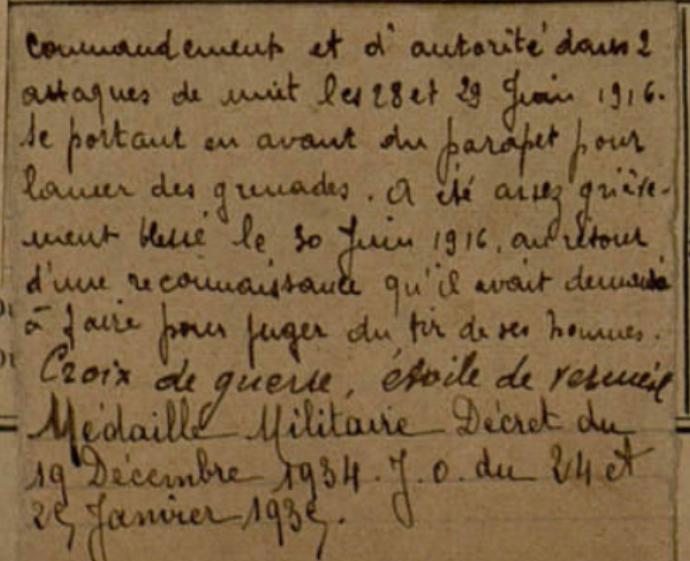 commandement et d'autorité dans 2
attaques de nuit les 28 et 29 Juin 1916.
se portant en avant du parapet pour
lancer des grenades. A été assez griève-
ment blessé le 30 Juin 1916, au retour
d'une reconnaissance qu'il avait demandé
à faire pour juger du tir de ses hommes.
Croix de guerre, étoile de vermeil
Médaille Militaire Décret du
19 Décembre 1934. J.O. du 24 et
25 Janvier 1935.